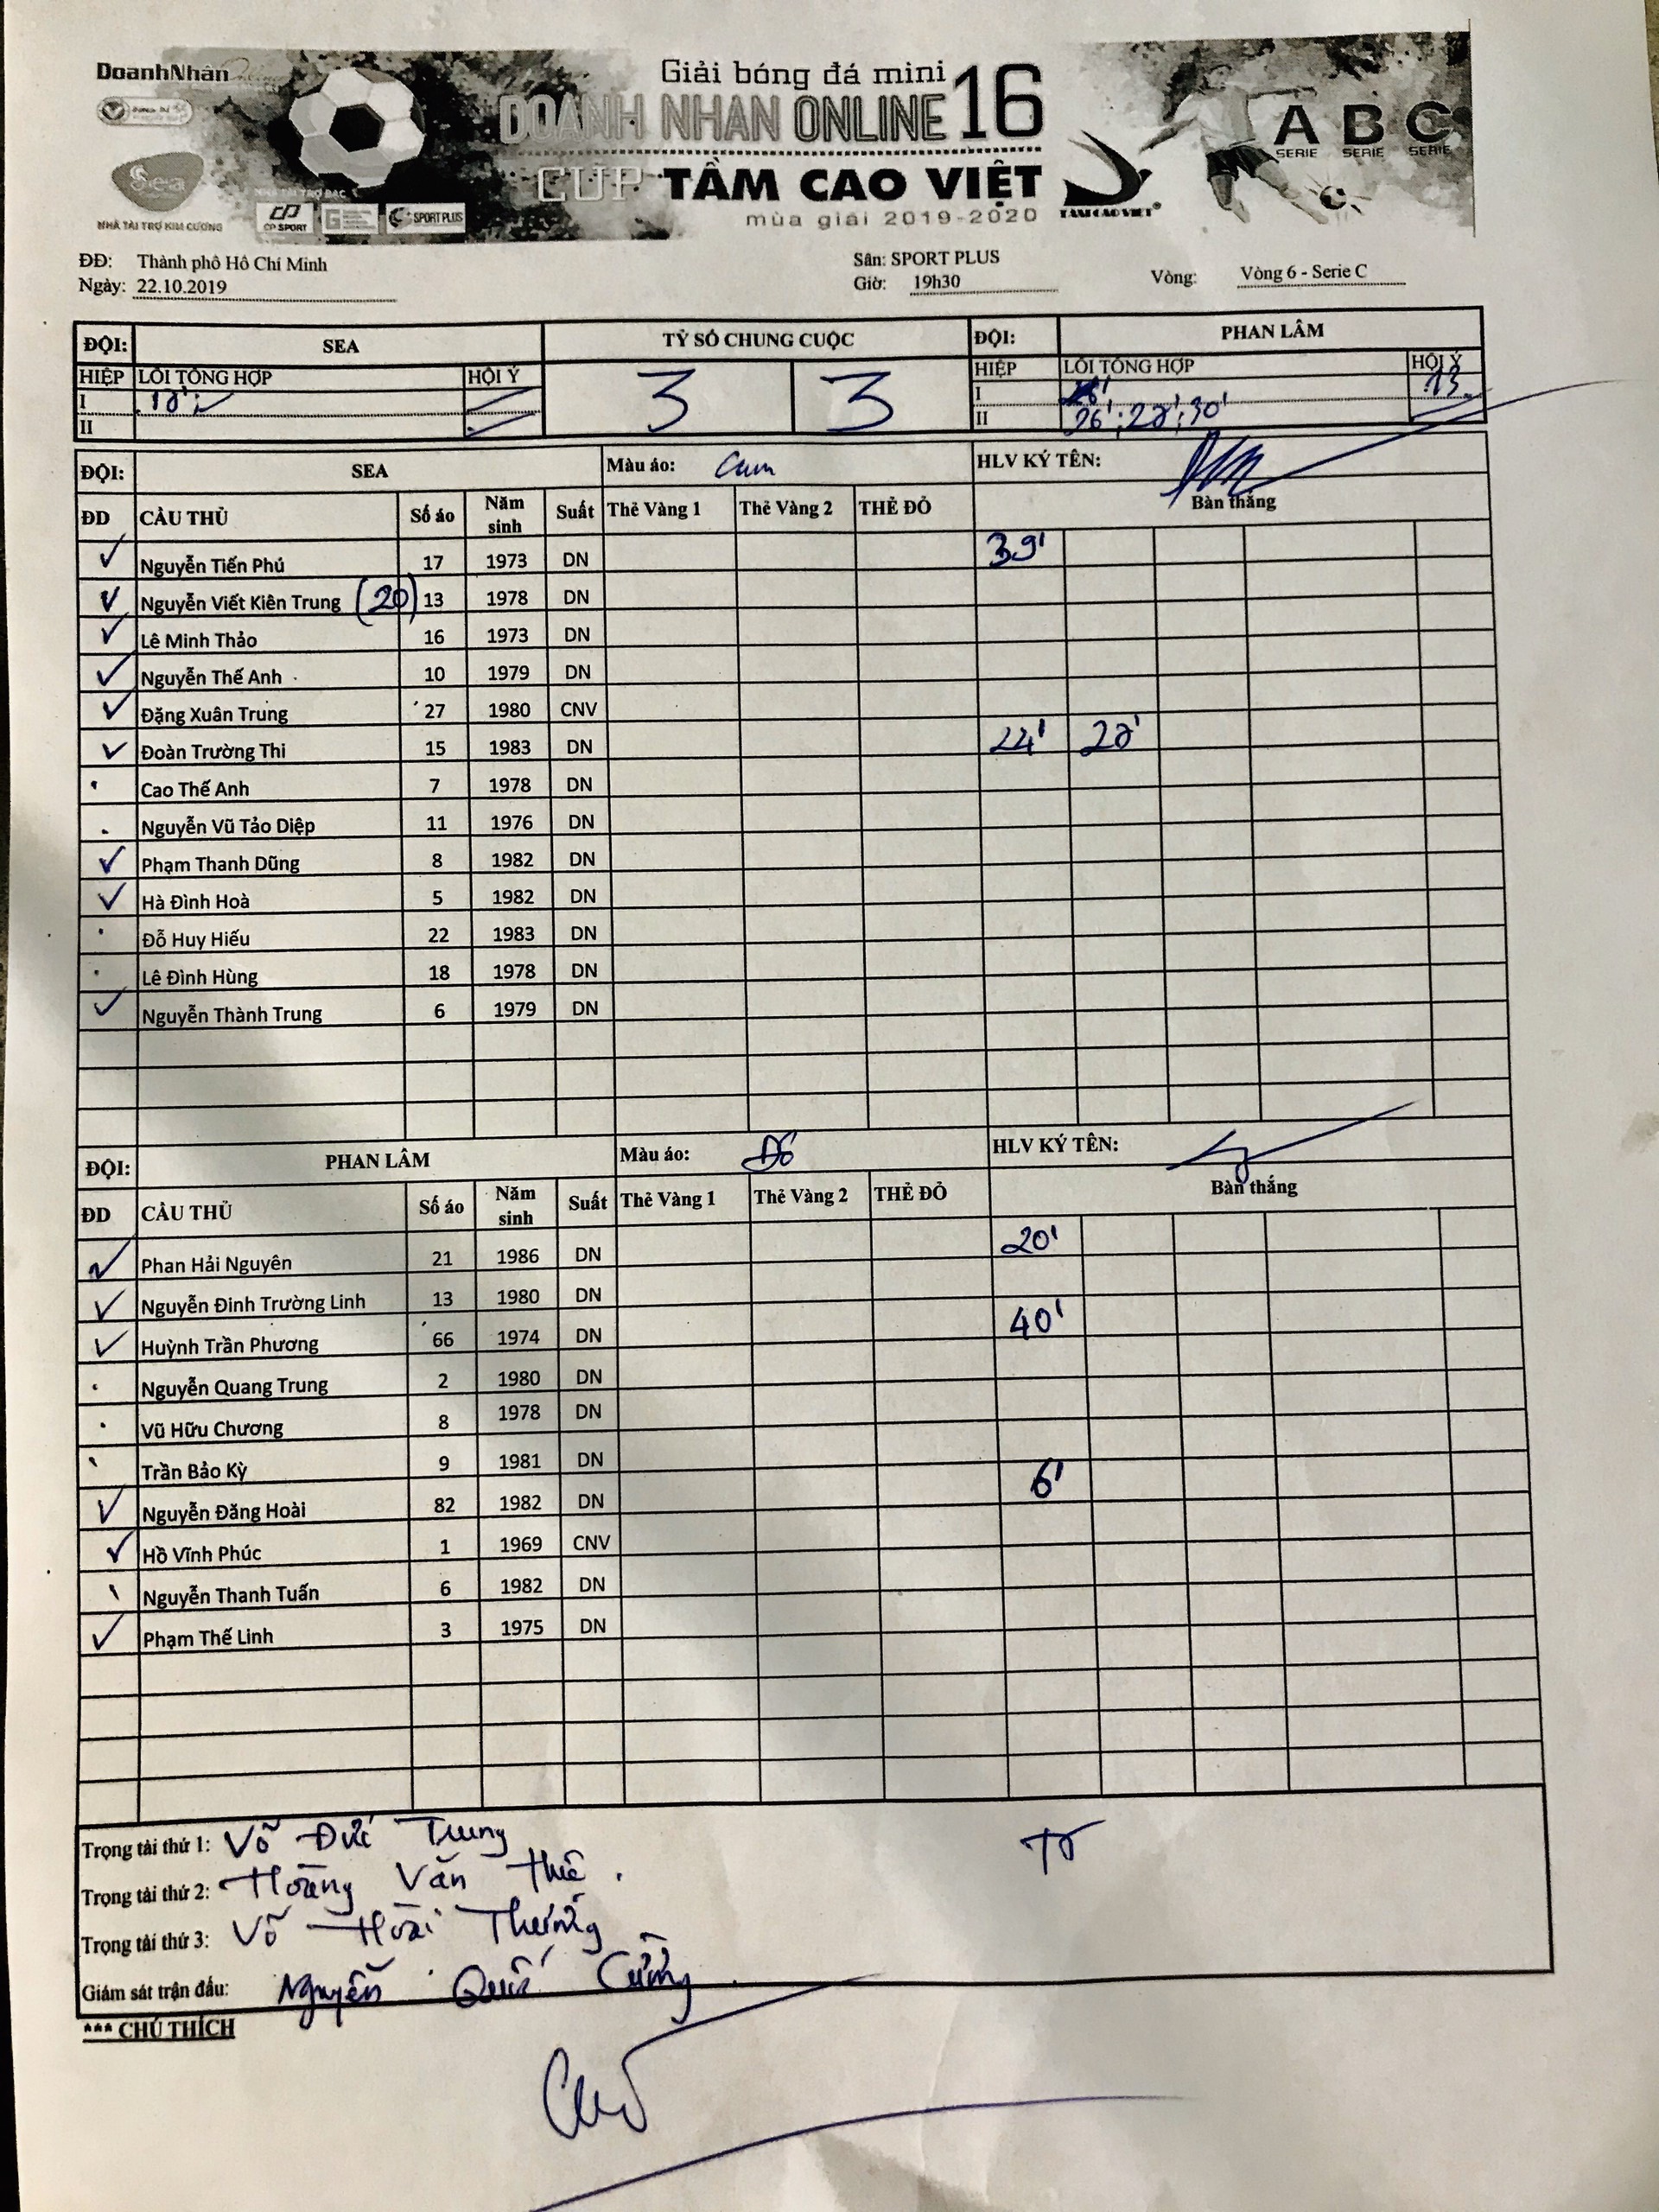 DoanhNhân Online
Giải bóng đá mini
DOANH NHAN ONLINE 16
CUP TẦM CAO VIỆT
mùa giải 2019-2020
Sea
NHÀ TÀI TRỢ KIM CƯƠNG
NHÀ TÀI TRỢ BẠC
CP SPORT
SPORT PLUS
TAM CAO VIET
A B C
SERIE SERIE SERIE
ĐĐ: Thành phố Hồ Chí Minh Sân: SPORT PLUS
Ngày: 22.10.2019 Giờ: 19h30 Vòng: Vòng 6 - Serie C
ĐỘI: SEA TỶ SỐ CHUNG CUỘC ĐỘI: PHAN LÂM
HIỆP LỖI TỔNG HỢP HỘI Ý 3 3 HIỆP LỖI TỔNG HỢP HỘI Ý
I 18' I 13
II II 26'; 28'; 30'
ĐỘI: SEA Màu áo: Cam HLV KÝ TÊN:
ĐD CẦU THỦ Số áo Năm sinh Suất Thẻ Vàng 1 Thẻ Vàng 2 THẺ ĐỎ Bàn thắng
Nguyễn Tiến Phú 17 1973 DN 39'
Nguyễn Viết Kiên Trung (20) 13 1978 DN
Lê Minh Thảo 16 1973 DN
Nguyễn Thế Anh 10 1979 DN
Đặng Xuân Trung 27 1980 CNV
Đoàn Trường Thi 15 1983 DN 24' 28'
Cao Thế Anh 7 1978 DN
Nguyễn Vũ Tảo Diệp 11 1976 DN
Phạm Thanh Dũng 8 1982 DN
Hà Đình Hoà 5 1982 DN
Đỗ Huy Hiếu 22 1983 DN
Lê Đình Hùng 18 1978 DN
Nguyễn Thành Trung 6 1979 DN
ĐỘI: PHAN LÂM Màu áo: Đỏ HLV KÝ TÊN:
ĐD CẦU THỦ Số áo Năm sinh Suất Thẻ Vàng 1 Thẻ Vàng 2 THẺ ĐỎ Bàn thắng
Phan Hải Nguyên 21 1986 DN 20'
Nguyễn Đinh Trường Linh 13 1980 DN
Huỳnh Trần Phương 66 1974 DN 40'
Nguyễn Quang Trung 2 1980 DN
Vũ Hữu Chương 8 1978 DN
Trần Bảo Kỳ 9 1981 DN
Nguyễn Đăng Hoài 82 1982 DN 6'
Hồ Vĩnh Phúc 1 1969 CNV
Nguyễn Thanh Tuấn 6 1982 DN
Phạm Thế Linh 3 1975 DN
Trọng tài thứ 1: Võ Đức Trung
Trọng tài thứ 2: Hoàng Văn
Trọng tài thứ 3: Võ Hoài Thương
Giám sát trận đấu: Nguyễn Quốc Cường
*** CHÚ THÍCH